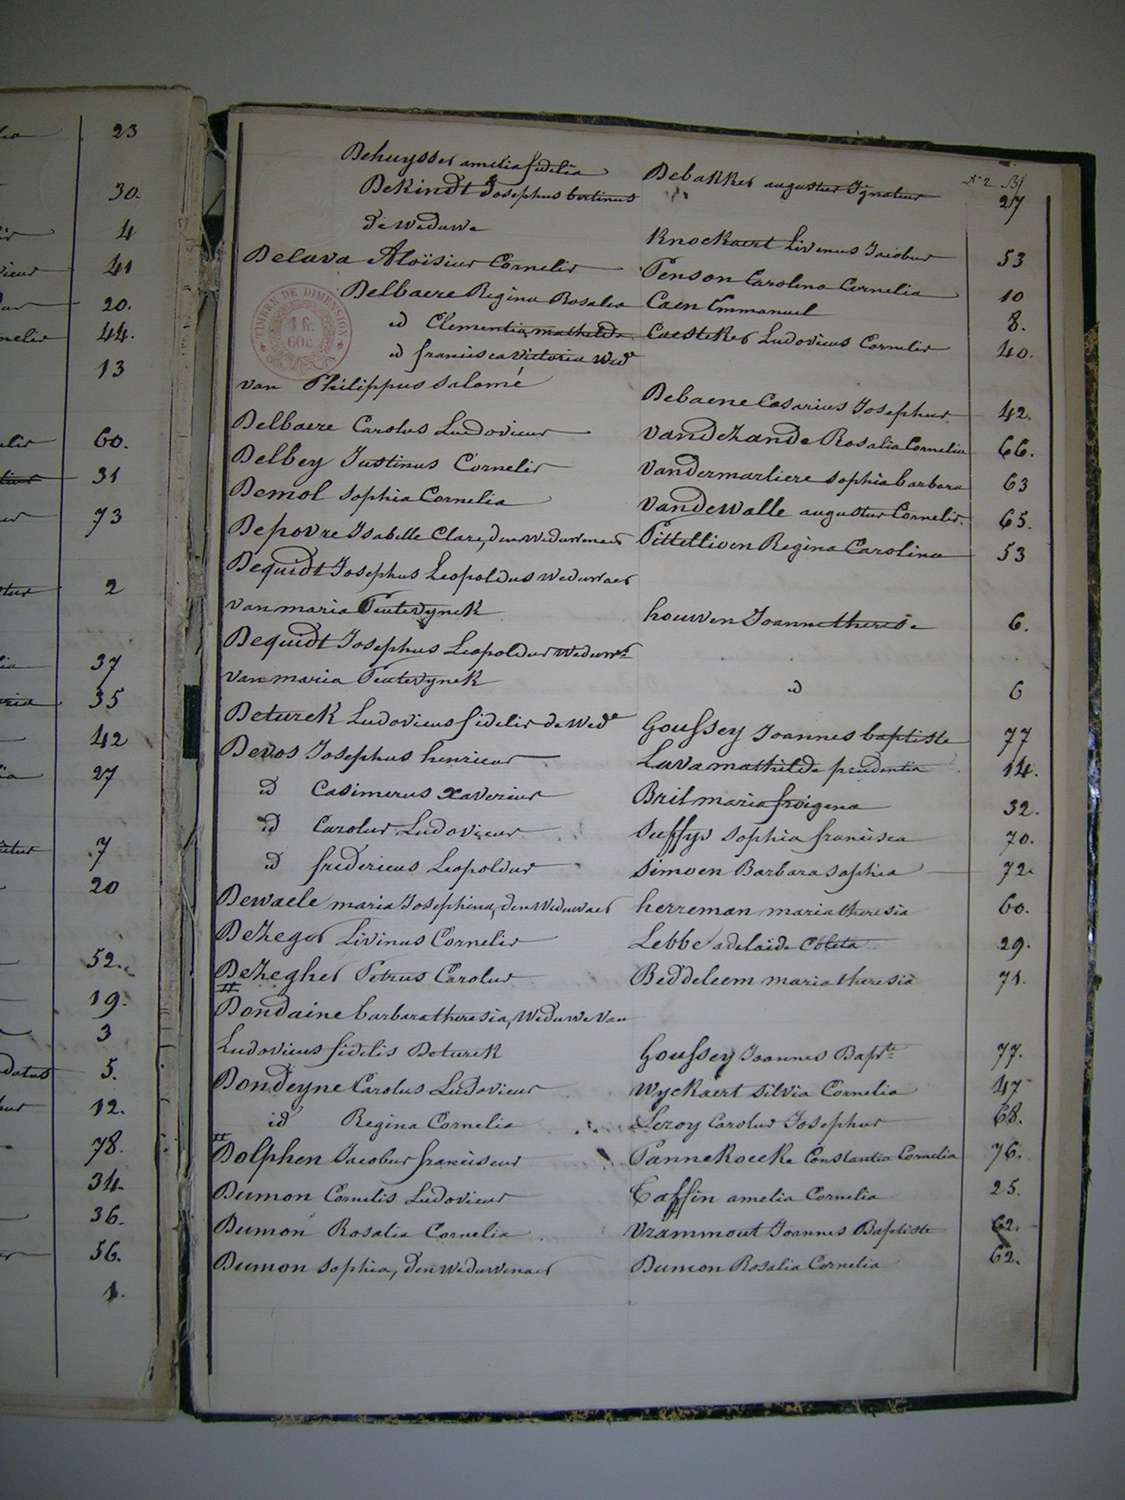 23
30.
4
41
20.
44.
13
60.
31
73
2
37
35
42
27
7
20
52.
19.
3
5.
12.
78.
34.
36.
56.
1.
TIMBRE DE DIMENSION
1 fr.
60c
Dehuysser amelia fidelia Debakker augustus Ignatius 27
Dekindt Josephus bertinus
de Weduwe Knockaert Livinus Jacobus 53
Delava Aloïsius Cornelis Penson Carolina Cornelia 10
Delbaere Regina Rosalia Caen Emmanuel 8.
id Clementia mathilda Caesteker Ludovicus Cornelis 40.
id francisca victoria Wede
van Philippus Salomé Debaene Cesarius Josephus 42.
Delbaere Carolus Ludovicus vandezande Rosalia Cornelia 66.
Delbey Justinus Cornelis vandermarliere sophia barbara 63
Demol sophia Cornelia vandewalle augustus Cornelis. 65.
Depovre Isabelle Clare, den Weduwenaer Pittellioen Regina Carolina 53
Dequidt Josephus Leopoldus Weduwaer
van maria Peutevynck houwen Joanne therese 6.
Dequidt Josephus Leopoldus Weduwr
van maria Peutevynck id 6
Deturck Ludovicus fidelis de Wede Goussey Joannes baptiste 77
Devos Josephus henricus Lava mathilde prudentia 14.
id Casimerus xaverius Bril maria froigena 32.
id Carolus Ludovicus Suffys sophia francisca 70.
id fredericus Leopoldus Simoen Barbara sophia 72.
Dewaele maria Josephina, den Weduwaer herreman maria theresia 60.
Dezeger Livinus Cornelis Lebbe adelaide Coleta 29.
Dezegher Petrus Carolus Beddeleem maria theresia 71.
Dondaine barbara theresia, Weduwe van
Ludovicus fidelis Deturck Goussey Joannes Bapte 77.
Dondeyne Carolus Ludovicus Wyckaert silvia Cornelia 47
id Regina Cornelia Leroy Carolus Josephus 68.
Dolphen Jacobus franciscus Pannekoecke Constantia Cornelia 76.
Dumon Cornelis Ludovicus Caffin amelia Cornelia 25.
Dumon Rosalia Cornelia vrammout Joannes Baptiste 62.
Dumon sophia, den Weduwenaer Dumon Rosalia Cornelia 62.